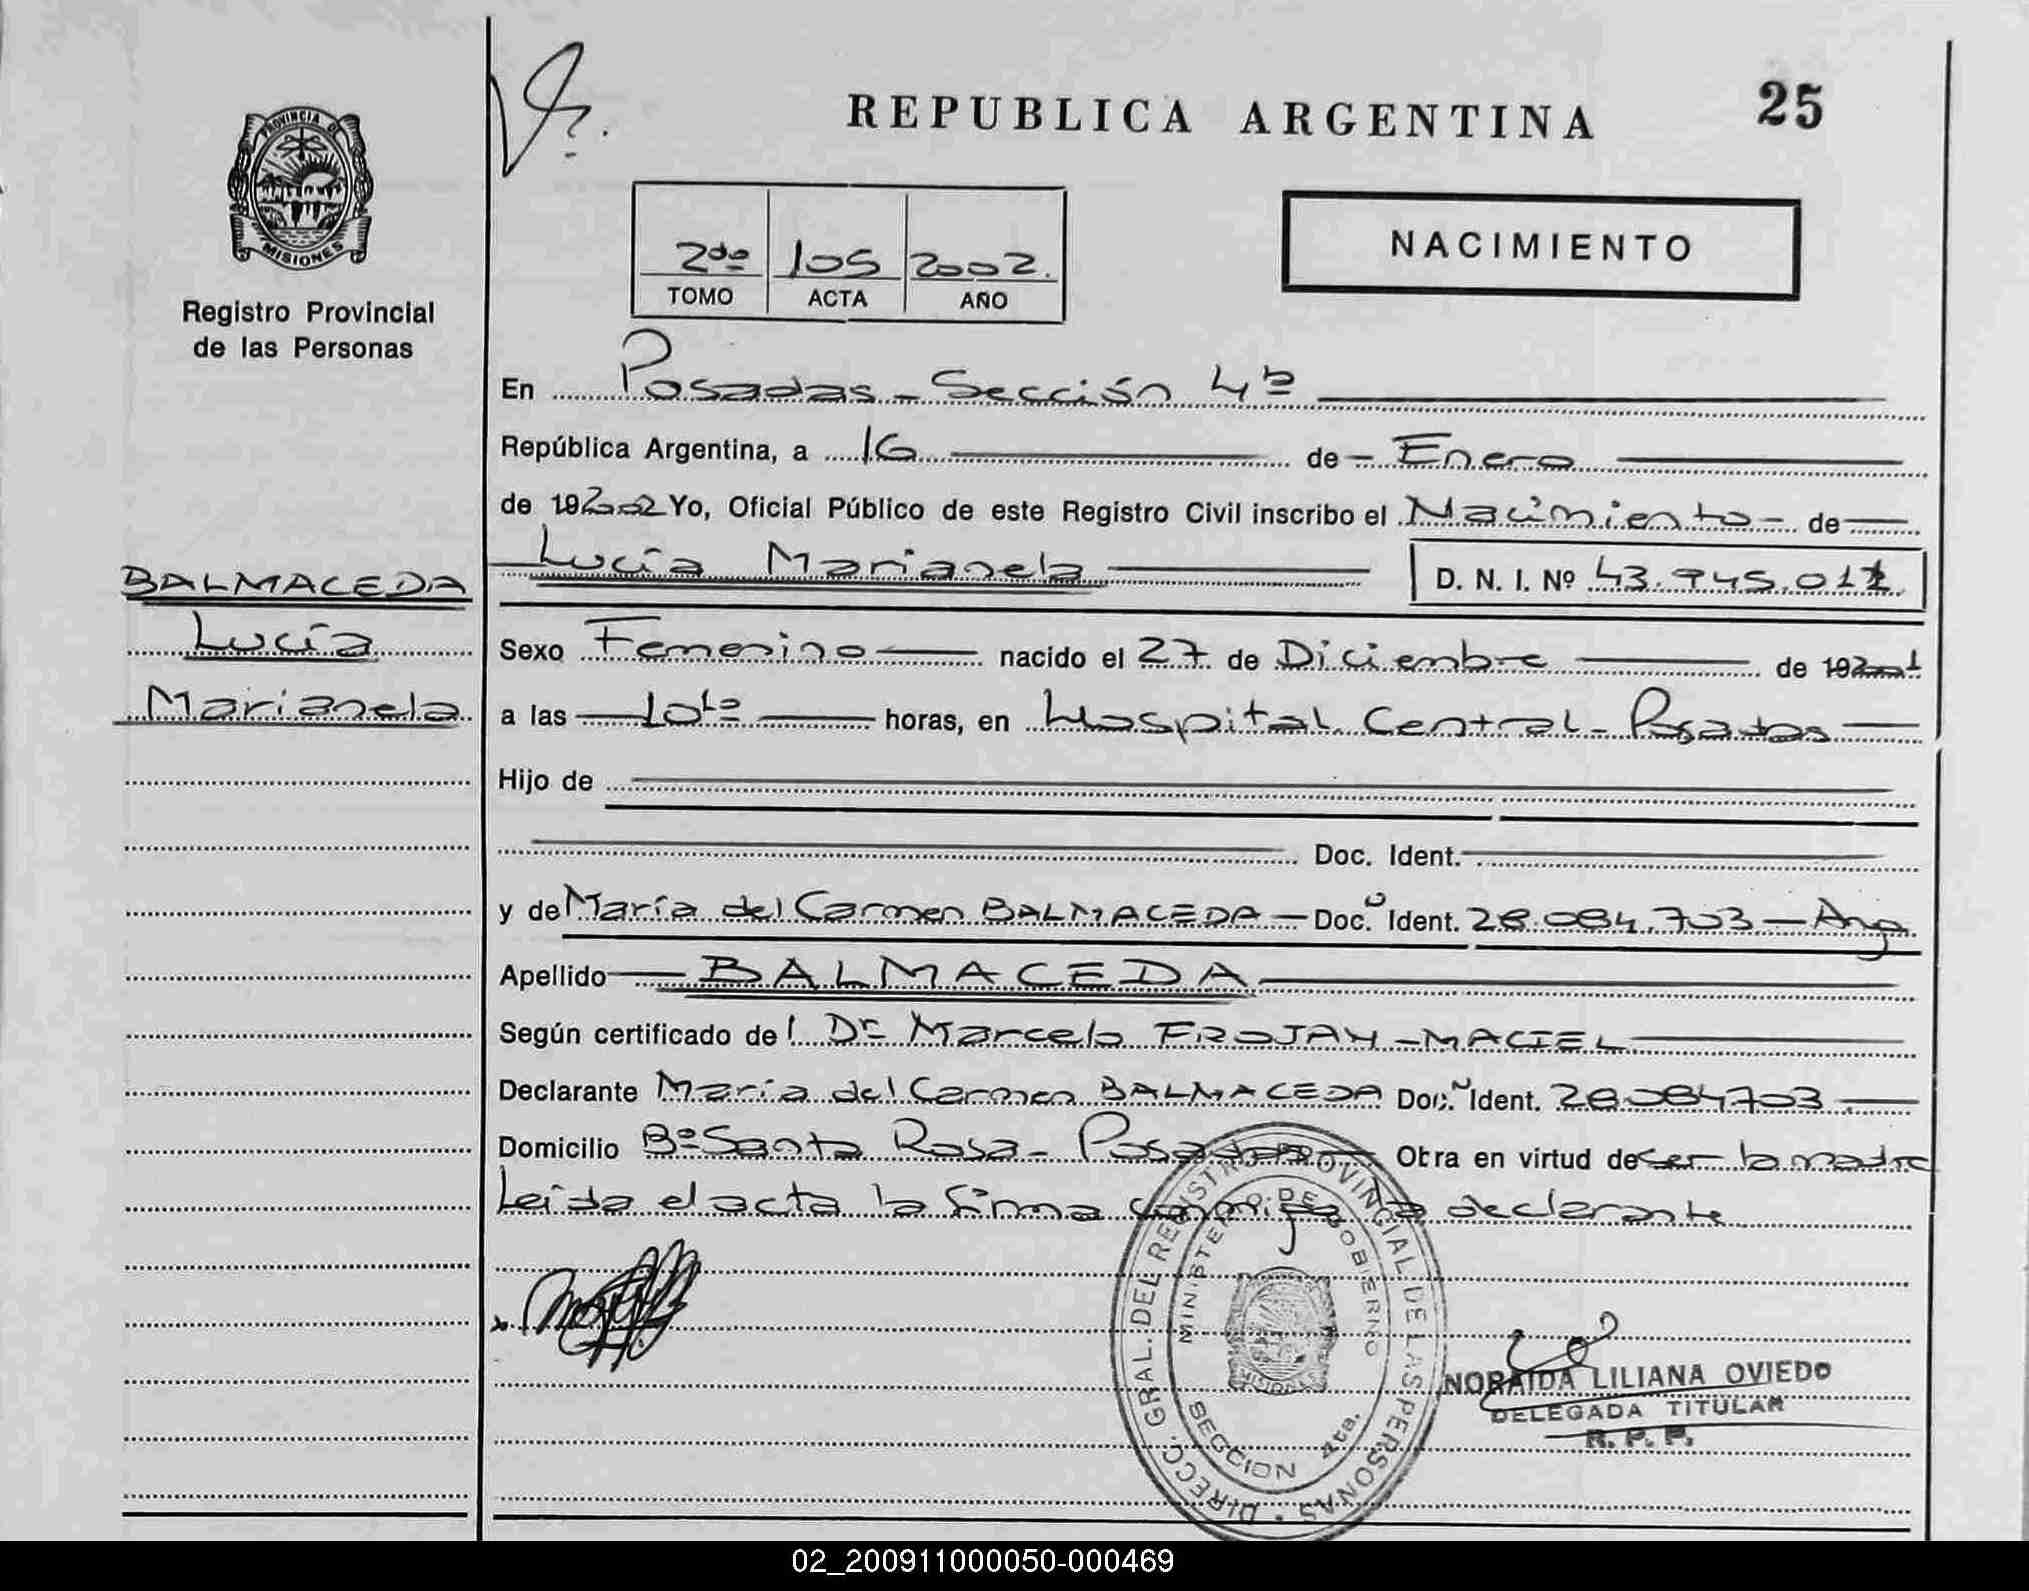 PROVINCIA DE
MISIONES
Registro Provincial
de las Personas
BALMACEDA
Lucía
Marianela
REPUBLICA ARGENTINA
25
2do 105 2002.
TOMO ACTA AÑO
NACIMIENTO
En Posadas - Sección 4ª
República Argentina, a 16 de Enero
de 192002 Yo, Oficial Público de este Registro Civil inscribo el Nacimiento - de
Lucía Marianela D. N. I. Nº 43.745.011
Sexo Femenino nacido el 27 de Diciembre de 192001
a las horas, en Hospital Central - Posadas
Hijo de
Doc. Ident.
y de María del Carmen BALMACEDA - Doc. Ident. 28.084.703 - Arg
Apellido BALMACEDA
Según certificado del Dr Marcelo FROJAY - MACIEL
Declarante María del Carmen BALMACEDA Doc. Ident. 28.084703
Domicilio Bº Santa Rosa - Posadas Obra en virtud de ser la madre
Leída el acta la firma conmigo la declarante
DIRECC. GRAL. DEL REGISTRO PROVINCIAL DE LAS PERSONAS
MINISTERIO DE GOBIERNO
MISIONES
SECCION 4ta.
NORAIDA LILIANA OVIEDO
DELEGADA TITULAR
R. P. P.
02_200911000050-000469